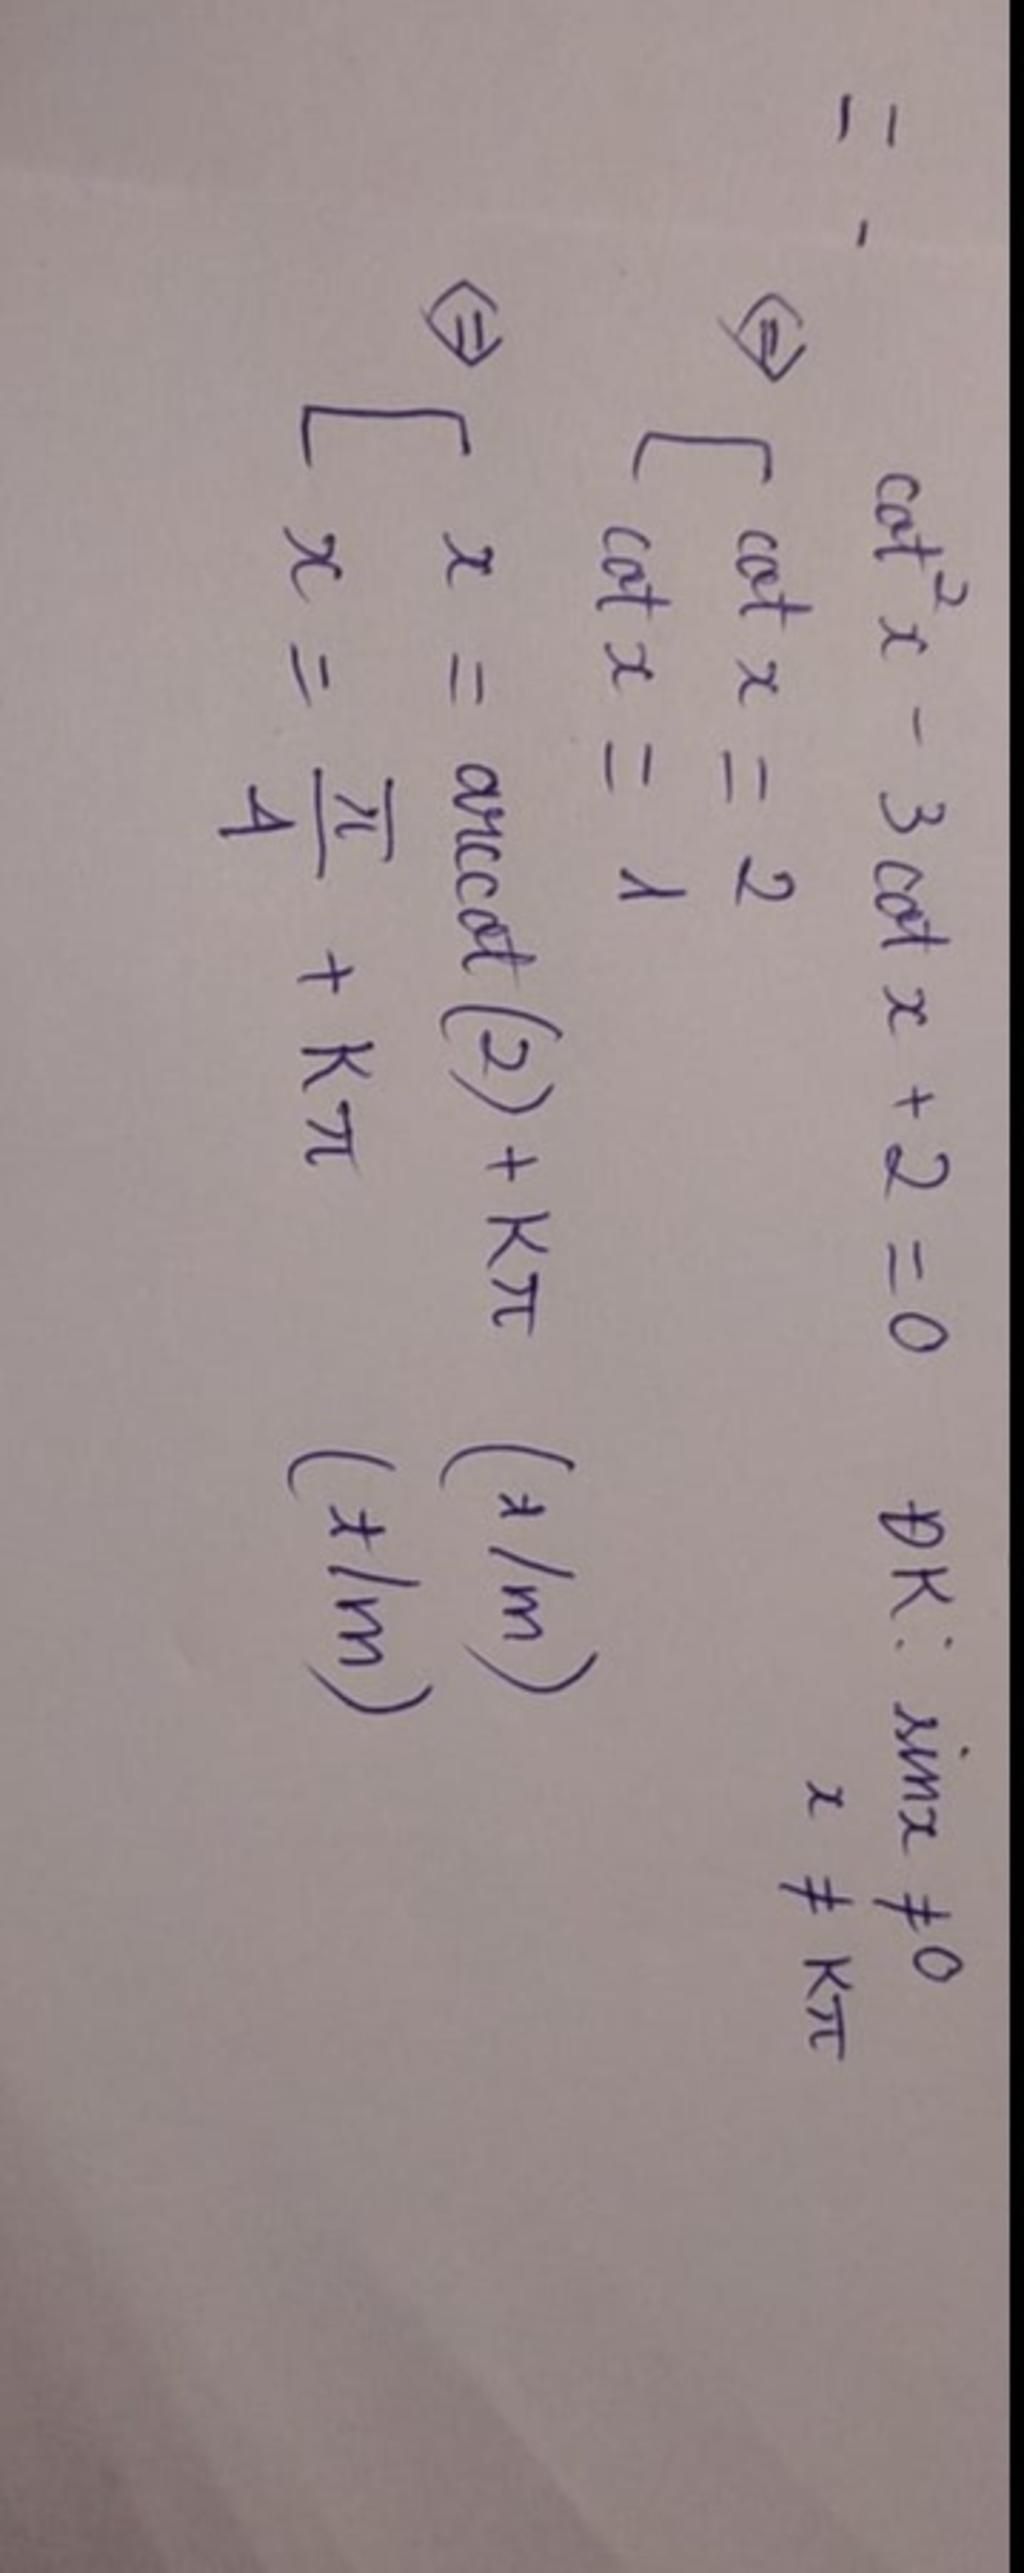 cot²x - 3cot x + 2 = 0 ĐK: sinx ≠ 0
x ≠ Kπ
= -
⇔ [ cot x = 2
cot x = 1
⇔ [ x = arccot(2) + Kπ (t/m)
x = π/4 + Kπ (t/m)